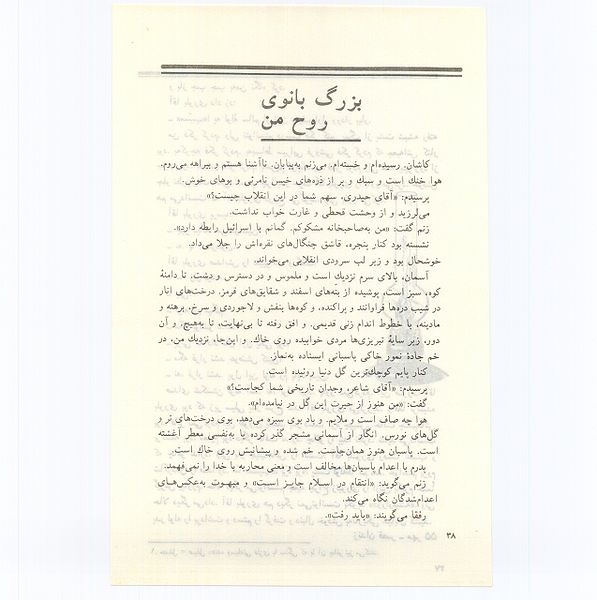 بزرگ بانوی
روح من
کاشان. رسیده‌ام و خسته‌ام. می‌زنم به‌بیابان. ناآشنا هستم و بیراهه می‌روم.
هوا خنک است و سبک و پر از ذره‌های خیس نامرئی و بوهای خوش.
پرسیدم: «آقای حیدری، سهم شما در این انقلاب چیست؟»
می‌لرزید و از وحشت قحطی و غارت خواب نداشت.
زنم گفت: «من به‌صاحبخانه مشکوکم. گمانم با اسرائیل رابطه دارد».
نشسته بود کنار پنجره، قاشق چنگال‌های نقره‌اش را جلا می‌داد.
خوشحال بود و زیر لب سرودی انقلابی می‌خواند.
آسمان، بالای سرم نزدیک است و ملموس و در دسترس و دشت، تا دامنهٔ
کوه، سبز است، پوشیده از بته‌های اسفند و شقایق‌های قرمز. درخت‌های انار
در شیب دره‌ها فراوانند و پراکنده، و کوه‌ها بنفش و لاجوردی و سرخ، برهنه و
مادینه، با خطوط اندام زنی قدیمی. و افق رفته تا بی‌نهایت، تا به‌هیچ، و آن
دور، زیر سایهٔ تبریزی‌ها مردی خوابیده روی خاک. و این‌جا، نزدیک من، در
خم جادهٔ نمور خاکی پاسبانی ایستاده به‌نماز.
کنار پایم کوچک‌ترین گل دنیا روئیده است.
پرسیدم: «آقای شاعر، وجدان تاریخی شما کجاست؟»
گفت: «من هنوز از حیرت این گل در نیامده‌ام».
هوا چه صاف است و ملایم. و باد بوی سبزه می‌دهد، بوی درخت‌های تر و
گل‌های نورس. انگار از آسمانی مشجر گذر کرده یا به‌نفسی معطر آغشته
است. پاسبان هنوز همان‌جاست. خم شده و پیشانیش روی خاک است.
پدرم با اعدام پاسبان‌ها مخالف است و معنی محاربه با خدا را نمی‌فهمد.
زنم می‌گوید: «انتقام در اسلام جایز است» و مبهوت به‌عکس‌های
اعدام‌شدگان نگاه می‌کند.
رفقا می‌گویند: «باید رفت».
۳۸